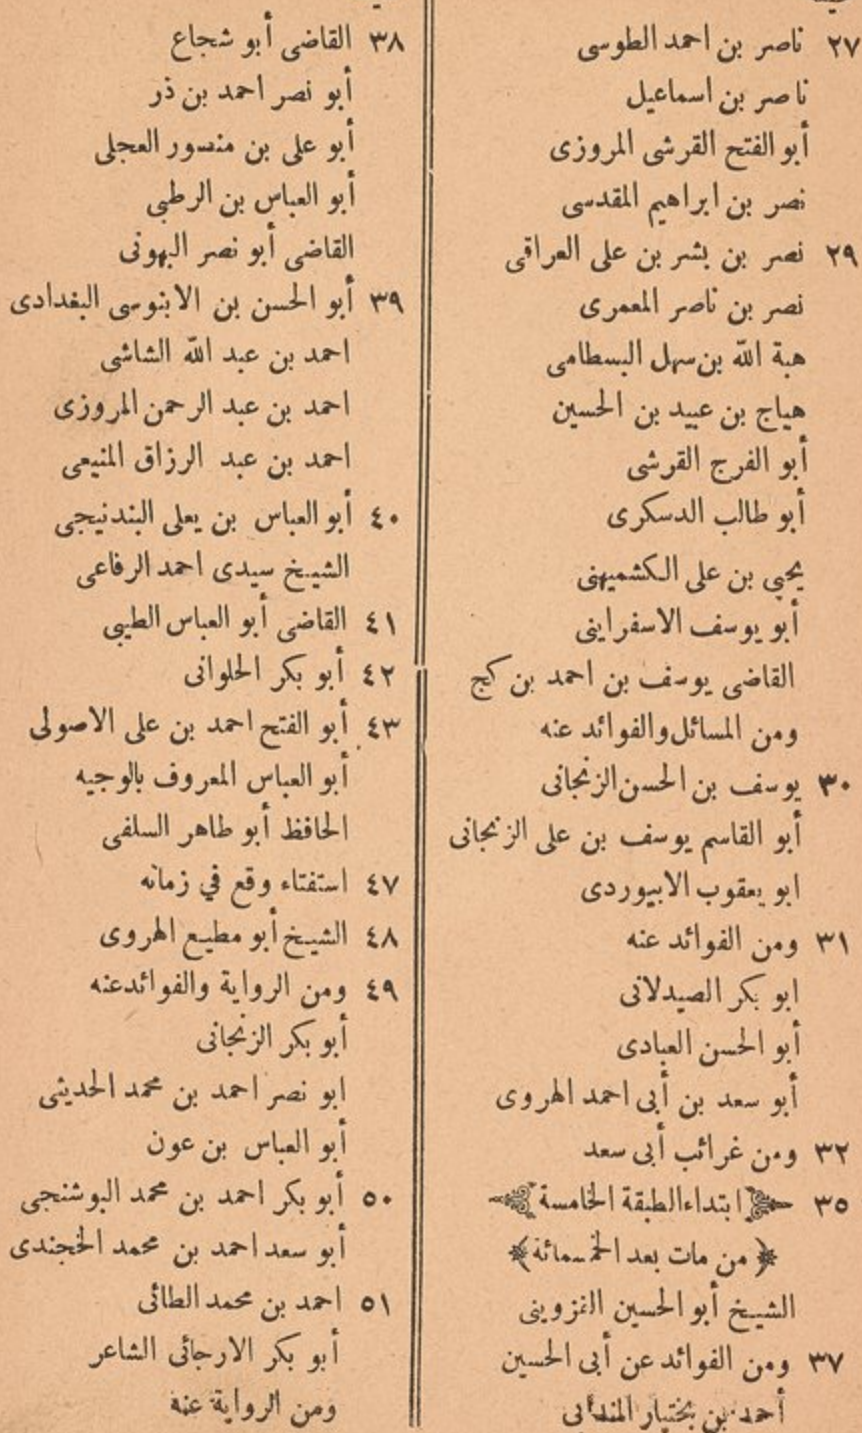 ٢٧ ناصر بن احمد الطوسى
ناصر بن اسماعيل
أبو الفتح القرشى المروزى
نصر بن ابراهيم المقدسى
٢٩ نصر بن بشر بن على العراقى
نصر بن ناصر المعمرى
هبة الله بن سهل البسطامى
هياج بن عبيد بن الحسين
أبو الفرج القرشى
أبو طالب الدسكرى
يحيى بن على الكشميهنى
أبو يوسف الاسفراينى
القاضى يوسف بن احمد بن كج
ومن المسائل والفوائد عنه
٣٠ يوسف بن الحسن الزنجانى
أبو القاسم يوسف بن على الزنجانى
ابو يعقوب الابيوردى
٣١ ومن الفوائد عنه
ابو بكر الصيدلانى
أبو الحسن العبادى
أبو سعد بن أبى احمد الهروى
٣٢ ومن غرائب أبى سعد
٣٥ ابتداء الطبقة الخامسة
﴿ من مات بعد الخمسمائة ﴾
الشيخ أبو الحسين القزوينى
٣٧ ومن الفوائد عن أبى الحسين
أحمد بن بختيار المندائى
٣٨ القاضى أبو شجاع
أبو نصر احمد بن ذر
أبو على بن منصور العجلى
أبو العباس بن الرطبى
القاضى أبو نصر البهونى
٣٩ أبو الحسن بن الابنوسى البغدادى
احمد بن عبد الله الشاشى
احمد بن عبد الرحمن المروزى
احمد بن عبد الرزاق المنيعى
٤٠ أبو العباس بن يعلى البندنيجى
الشيخ سيدى احمد الرفاعى
٤١ القاضى أبو العباس الطيبى
٤٢ أبو بكر الحلوانى
٤٣ أبو الفتح احمد بن على الاصولى
أبو العباس المعروف بالوجيه
الحافظ أبو طاهر السلفى
٤٧ استفتاء وقع في زمانه
٤٨ الشيخ أبو مطيع الهروى
٤٩ ومن الرواية والفوائد عنه
أبو بكر الزنجانى
ابو نصر احمد بن محمد الحديثى
أبو العباس بن عون
٥٠ أبو بكر احمد بن محمد البوشنجى
أبو سعد احمد بن محمد الخجندى
٥١ احمد بن محمد الطائى
أبو بكر الارجائى الشاعر
ومن الرواية عنه